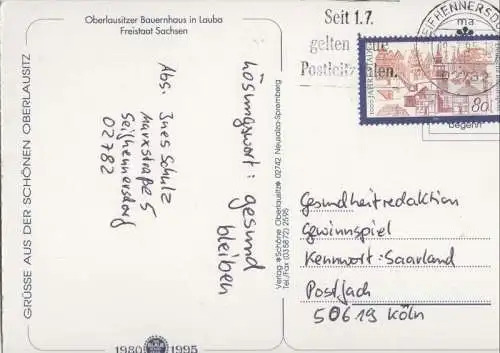 Oberlausitzer Bauernhaus in Lauba
Freistaat Sachsen
GRÜSSE AUS DER SCHÖNEN OBERLAUSITZ
Abs. Ines Schulz
Marxstraße 5
Seifhennersdorf
02782
Lösungswort: gesund
bleiben
1980 1995
Verlag »Schöne Oberlausitz« 02742 Neusalza-Spremberg
Tel./Fax (035872) 2595
Seit 1.7.
gelten neue
Postleitzahlen.
SEIFHENNERSDO
ma
02782
80
Gesundheitredaktion
Gewinnspiel
Kennwort: Saarland
Postfach
50619 Köln